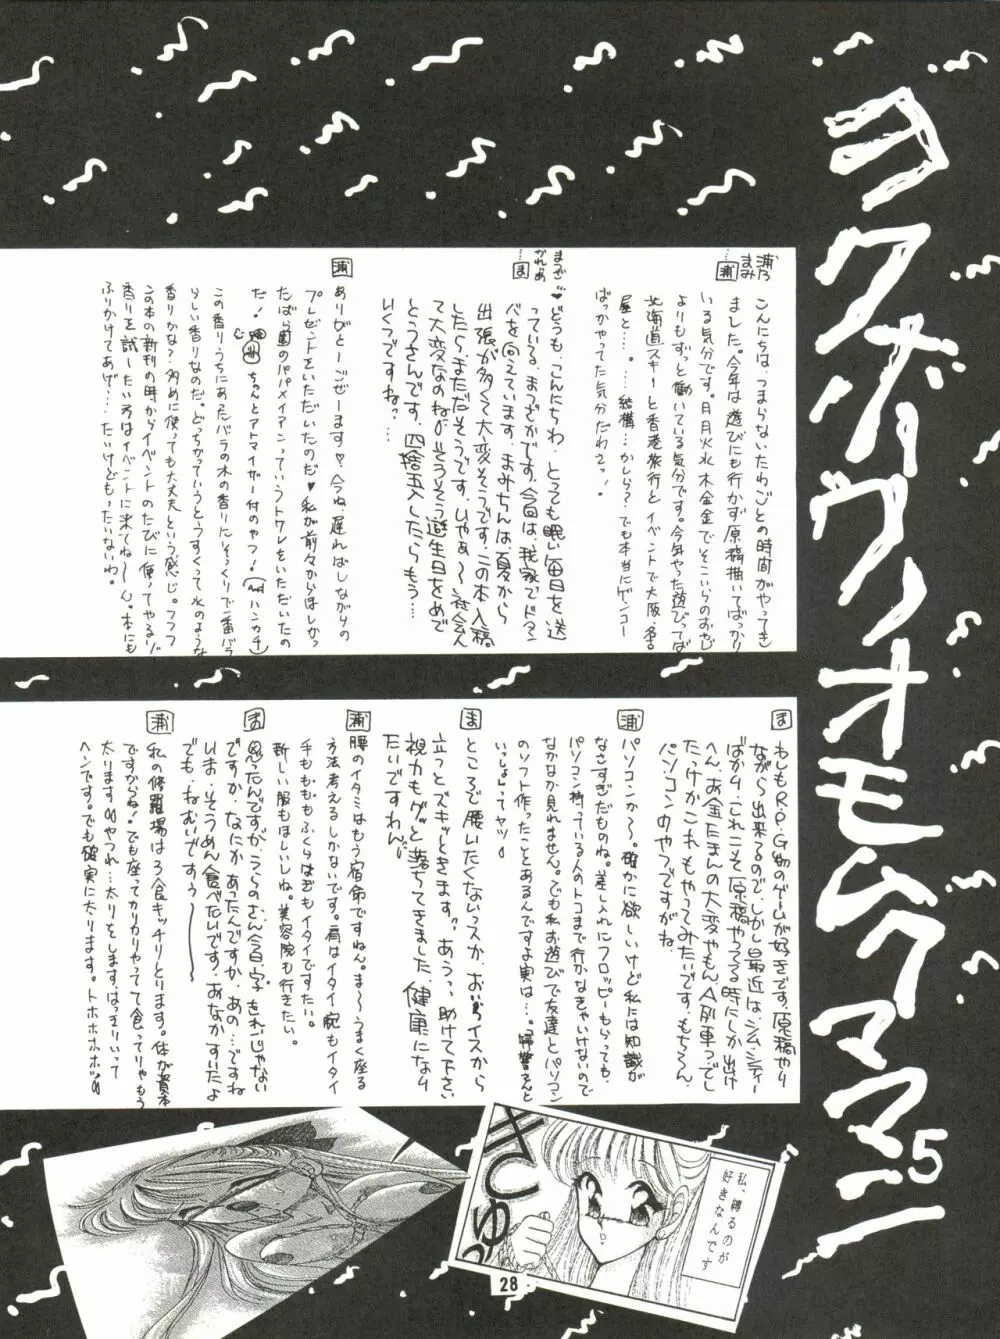 ヨクボーヴノオモムクママニ5
浦乃
まみ
…浦
こんにちは、つまらないたわごとの時間がやってき
ました。今年は遊びにも行かず原稿描いてばっかり
いる気分です。月月火水木金金でそこいらのおやじ
よりもずっと働いている気分です。今年やった遊びってば
北海道スキーと香港旅行とイベントで大阪、名古
屋と…。……結構…かしら?でも本当にゲンコー
ばっかやってた気分だわさっ!
まつざかれあ
…ま
♥どうも、こんにちわ、とっても眠い毎日を送
っている、まつざかです。今回は、我家でドタン
バを向えています。まみちんは、夏から
出張が多くて大変そうです。この本入稿
したら、まただそうです。ひやぁ〜会さん
て大変なのね。そうそう、誕生日をめで
とうさんです。四捨五入したらもう…
いくつですね?…
浦
ありがとーごぜーます♡今ね、遅ればしながらの
プレゼントをいただいたのだ♥私が前々からほしかっ
たばら園のパパメイアンっていうトワレをいただいたの
だ!ちゃんとアトマイザー付のやつ!(ハンカチ)
この香り、うちにあったバラの木の香りにそっくりで一番バラ
らしい香りなのだ。どっちかっていうとうすくって水のような
香りかな?多めに使っても大丈夫という感じ。フフフ
この本の新刊の時からイベントのたびに使ってやるゾ
香りを試したい方はイベントに来てね〜ん。本にも
ふりかけてあげ…たいけどもったいないわ。
ま
もしもR.P.G物のゲームが好きです。原稿やり
ながら出来るので。しかし最近は、シムシティー
ばかり。これこそ原稿やってる時にしか出け
へん。お金たまんの大変やもん。A列車っでし
たっけか これもやってみたいです。もちろん、
パソコンのやつですがね。
浦
パソコンか〜。確かに欲しいけど私には知識が
なさすぎだものね。差しふれにフロッピーもらっても、
パソコン持っている人のトコまで行かなきゃいけないので
なかなか見れません。でも私お遊びで友達とパソコン
のソフト作ったことあるんですよ実は…。
いっしょってヤツ
ま
ところで腰いたくないっスか、おいらイスから
立っとズキッときます。あうっっ、助けて下さい
視力もグッと落ちてきました。健康になり
たいですわん
浦
腰のイタミはもう宿命ですねん。ま〜うまく座る
方法考えるしかないです。肩はイタイ腕もイタイ
手もももふくらはぎもイタイですたい。
新しい服もほしいしね。美容院も行きたい。
ま
思ったんですが、うらのさん今日、字きれいじゃない
ですか、なんかあったんですか、あの…ですね
いま、そうめん食べたいです、あなかすいたよ
でも、ねむいですぅぅ〜〜
浦
私の修羅場は3食キッチリとります。体が資本
ですからね!でも座ってカリカリやってて食ってりゃもう
太ります やつれ…太りとします。はっきりいって
ヘンです。でも確実に太ります。トホホホホ
私、縛るのが
好きなんです
28